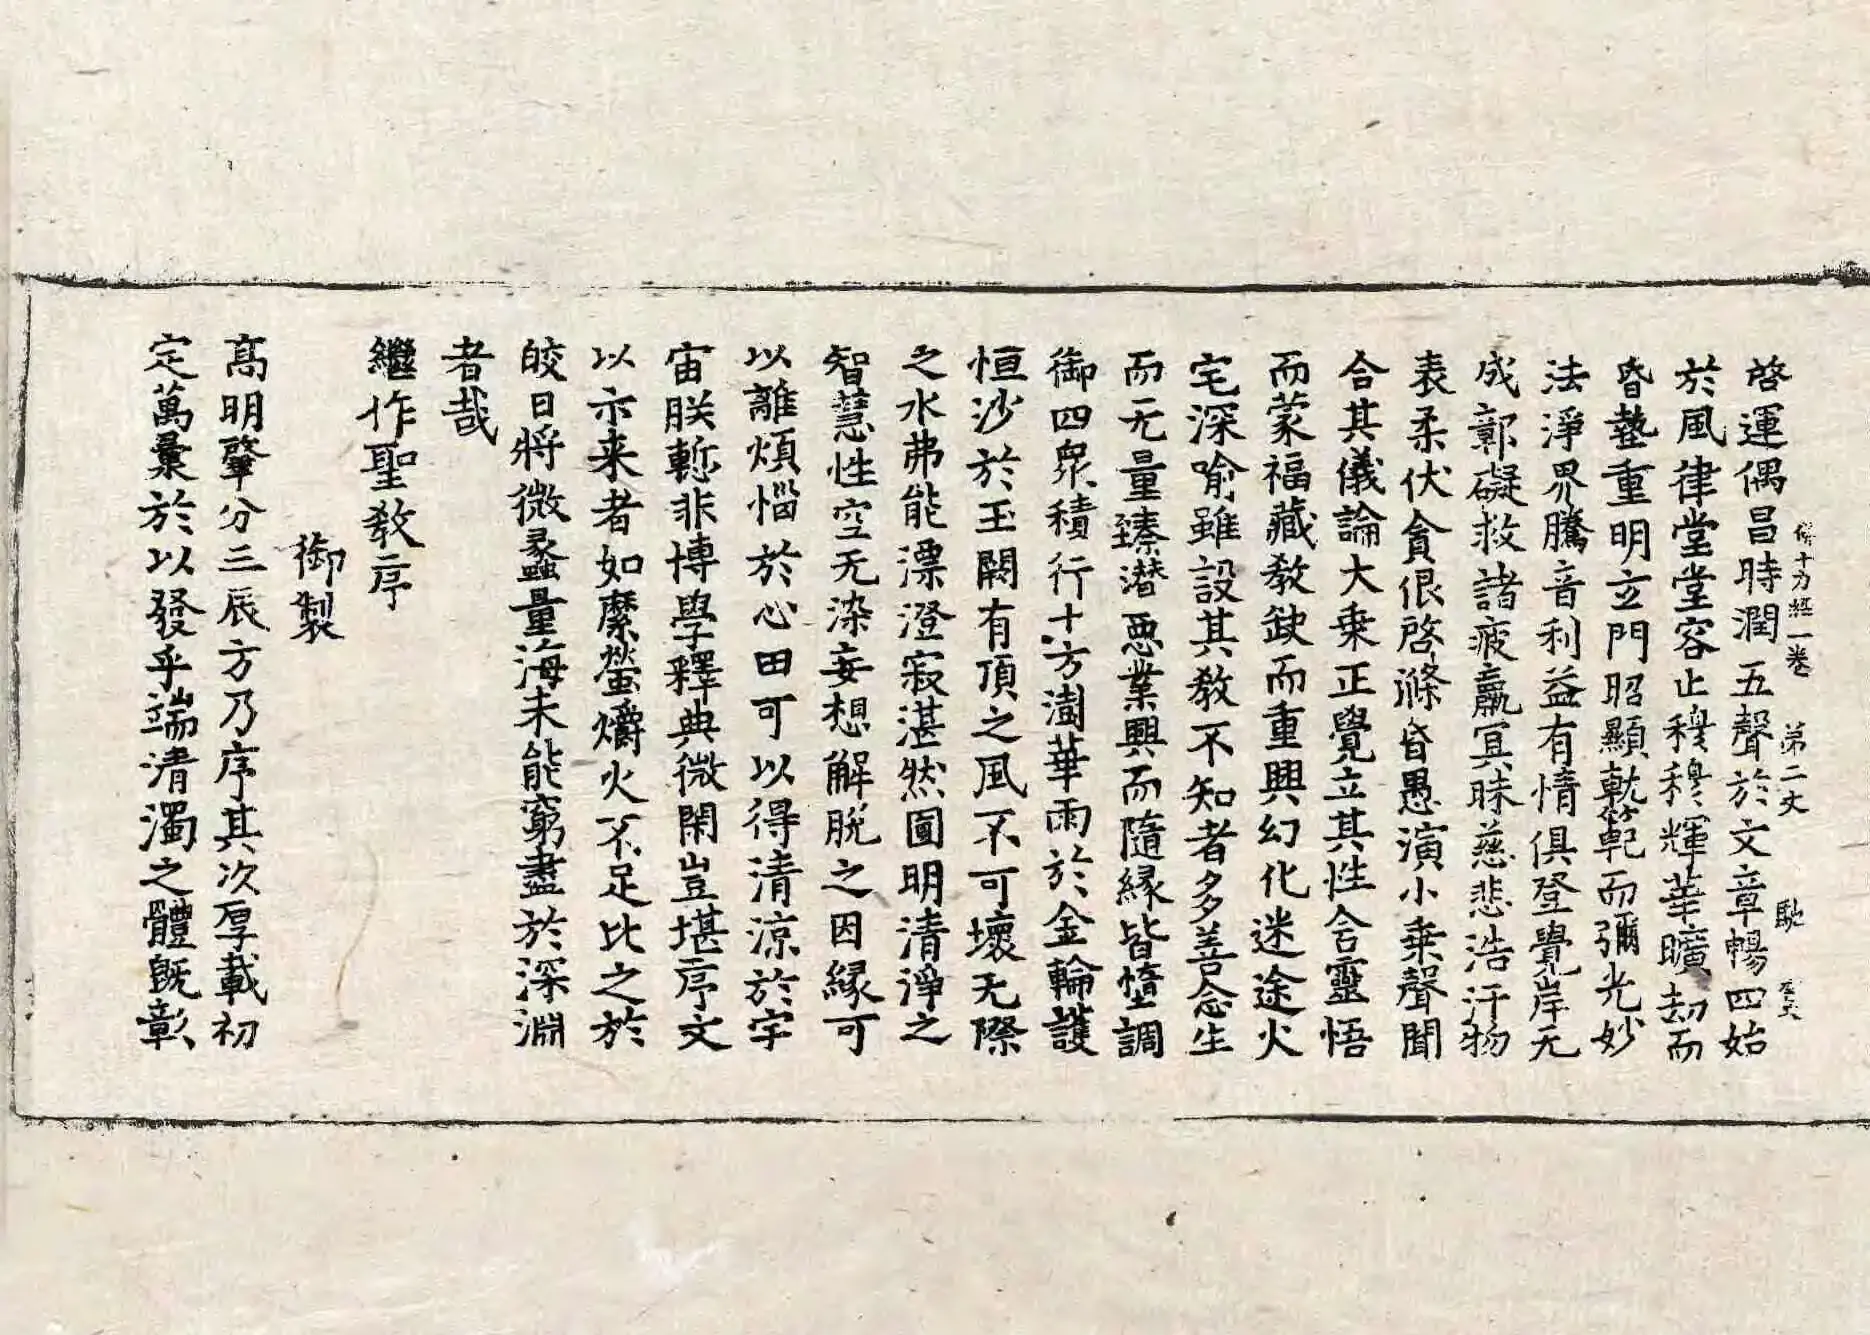 啓運偶昌時潤五聲於文章暢四始
脩十方經一卷 第二丈 馳
於風律堂堂容止穆穆輝華曠劫而
昏墊重明玄門昭顯軌範而彌光妙
法淨界騰音利益有情俱登覺岸无
成鄣礙救諸疲羸冥昧慈悲浩汗物
表柔伏貪佷啓滌昏愚演小乗聲聞
合其儀論大乗正覺立其性含靈悟
而蒙福藏教缺而重興幻化迷途火
宅深喻雖設其教不知者多善念生
而无量臻潜惡業興而隨緣皆墮調
御四衆積行十方澍華雨於金輪護
恒沙於玉闕有頂之風不可壞无際
之水弗能漂澄寂湛然圎明清淨之
智慧性空无染妄想解脱之因緣可
以離煩惱於心田可以得清涼於宇
宙朕慙非博學釋典微閑豈堪序文
以示来者如縻螢爝火不足比之於
皎日將微蠡量海未能窮盡於深淵
者哉
繼作聖教序
御製
髙明肇分三辰方乃序其次厚載初
定萬彙於以發乎端清濁之體旣彰